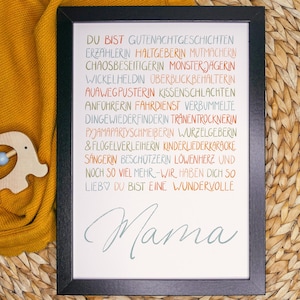 DU BIST GUTENACHTGESCHICHTEN
ERZÄHLERIN HALTGEBERIN MUTMACHERIN
CHAOSBESEITIGERIN MONSTERJÄGERIN
WICKELHELDIN ÜBERBLICKBEHALTERIN
AUAWEGPUSTERIN KISSENSCHLACHTEN
ANFÜHRERIN FAHRDIENST VERBUMMELTE
DINGEWIEDERFINDERIN TRÄNENTROCKNERIN
PYJAMAPARTYSCHMEIßERIN WURZELGEBERIN
&FLÜGELVERLEIHERIN KINDERLIEDERKARAOKE
SÄNGERIN BESCHÜTZERIN LÖWENHERZ UND
NOCH SO VIEL MEHR–WIR HABEN DICH SO
LIEB♡ DU BIST EINE WUNDERVOLLE
Mama